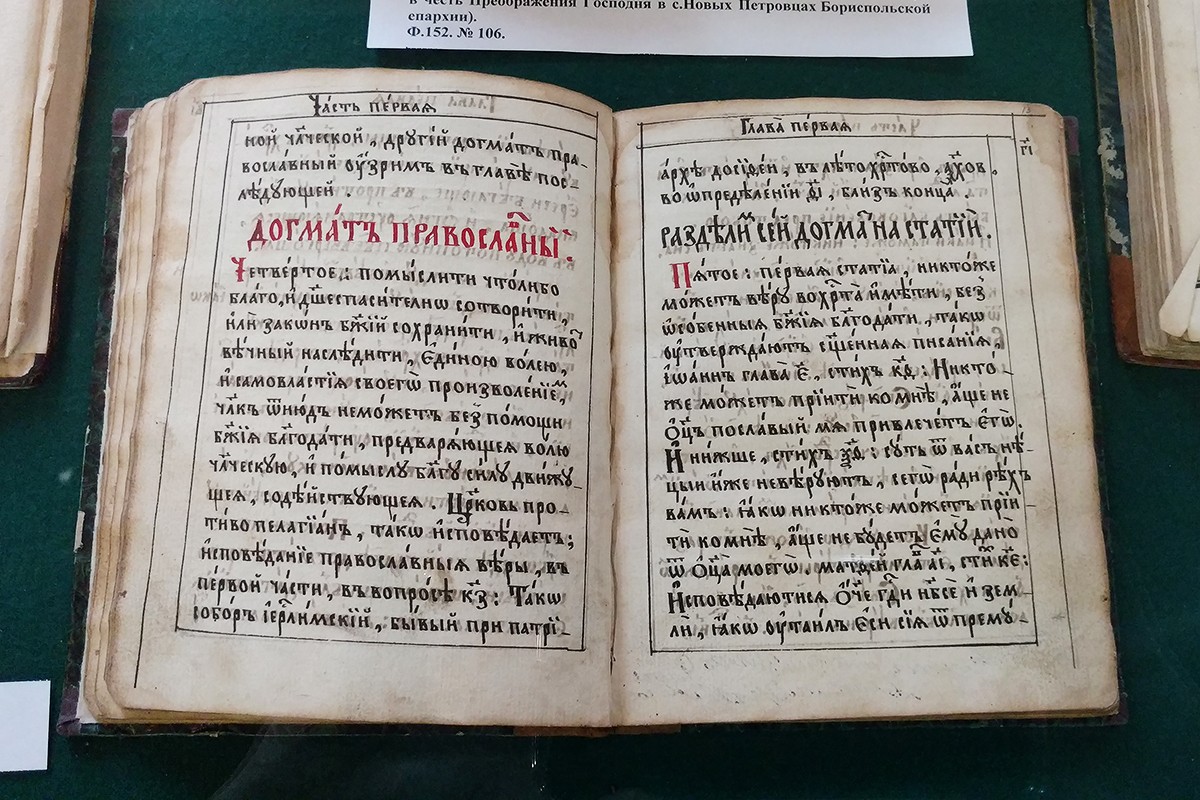 в честь Преображения Господня в с.Новых Петровцах Бориспольской
епархии).
Ф.152. № 106.
Ча́сть пе́рвая
ной чл҃ческой , другі́й догма́тъ пра-
вославный оу҆́зримъ въ главѣ̀ пос-
лѣ́дующей
ДОГМА́ТЪ ПРАВОСЛА́ВНЫЙ .
Четве́ртое : помы́слити что́либо
бла́го , и҆ дш҃еспаси́телнѡ сотвори́ти ,
и҆лѝ зако́нъ бж҃ій сохрани́ти , и҆ живо́т
вѣ́чный наслѣ́дити , є҆ди́ною во́лею ,
и҆ самовла́стїѧ своегѡ̀ произволе́нїемъ ,
чл҃къ ѿню́дъ немо́жетъ без̾ по́мощи
бж҃їѧ блг҃ода́ти , предварѧ́ющеѧ во́лю
чл҃ческую , и҆ по́мыслу бл҃гу си́лу дви́жу-
щеѧ , содѣ́йствующеѧ . Цр҃ковь про-
ти́во пелагїа́нъ , та́кѡ и҆сповѣ́даетъ ;
и҆сповѣ́данїе правосла́вныѧ вѣ́ры , въ
пе́рвой ча́сти , въ вопро́сѣ к҃з : Та́кѡ
собо́ръ і҆ерⷭ҇ли́мскїй , бы́вый при патрї-
Глава̀ пе́рвая
г҃і
а́рхѣ досїѳе́и , въ лѣ́то хрⷭ҇то́во ҂ахов .
во ѡ҆предѣле́нїи д҃і , бли́зъ конца̀ .
РАЗДѢЛИ́М СЕ́Й ДОГМА́Т НА СТАТІ́И .
Пѧ́тое : пе́рваѧ статїѧ̀ , никто́же
мо́жетъ вѣ́ру во хрⷭ҇та̀ и҆мѣ́ти , без
ѡ҆со́бенныѧ бж҃їѧ блг҃ода́ти , та́кѡ
оу҆твержда́ютъ сщ҃е́ннаѧ писа́нїѧ ,
і҆ѡа́ннъ глава̀ є҃ , сти́хъ к҃ѳ : Никто́-
же мо́жетъ прїитѝ ко мнѣ̀ , а҆́ще не
О҆ц҃ъ посла́вый мѧ̀ привлече́тъ є҆го̀ .
И҆ ни́жше , сти́хъ ѯ҃д : су́ть ѿ ва́съ нѣ́-
цыи и҆̀же невѣ́руютъ , сегѡ̀ ра́ди рѣ́хъ
ва́мъ : ꙗ҆́кѡ никто́же мо́жетъ прїи-
тѝ ко мнѣ̀ , а҆́ще не бу́детъ є҆му̀ дано̀
ѿ О҆ц҃а̀ моегѡ̀ . матѳе́й гла̀ а҃і , сти́ к҃є :
И҆сповѣ́даютисѧ О҆́ч҃е гдⷭ҇и нб҃сѐ и҆ зем-
лѝ , ꙗ҆́кѡ оу҆таи́лъ є҆сѝ сїѧ̀ ѿ прему́-